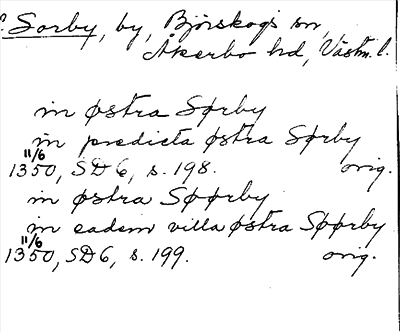 Sørby, by, Björskogs sn,
Åkerbo hd, Västm. l.
in østra Sørby
in predicta østra Sørby
11/6
1350, SD 6, s. 198. orig.
in østra Søørby
in eadem villa østra Søørby
11/6
1350, SD 6, s. 199. orig.